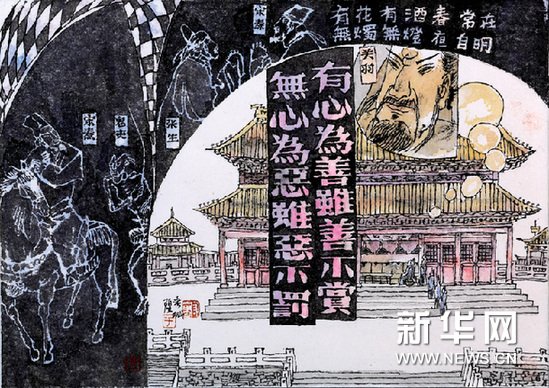 有花有酒春常在
無燭無燈夜自明
关羽
有心為善雖善不賞
無心為惡雖惡不罰
张生
新华网
WWW.NEWS.CN